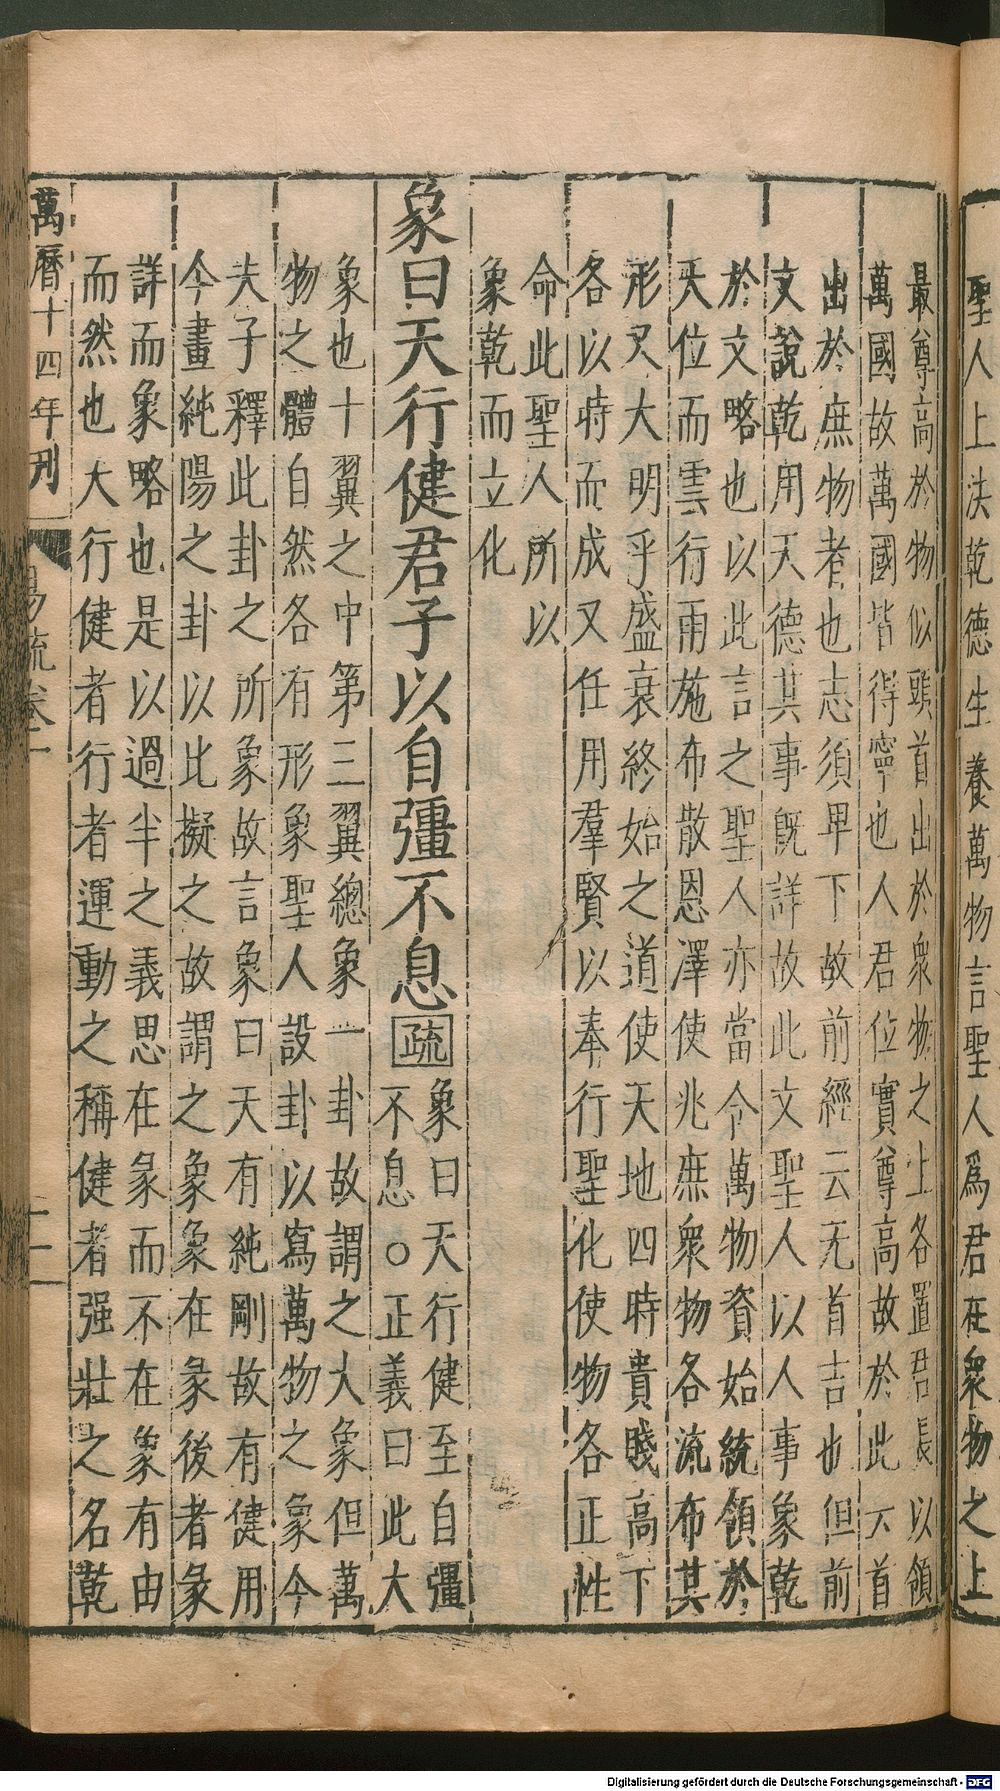 聖人上法乾德生養萬物言聖人爲君在衆物之上
最尊高於物似頭首出於衆物之上各置君長以領
萬國故萬國皆得寧也人君位實尊高故於此云首
出於庶物者也志須卑下故前經云无首吉也但前
文說乾用天德其事旣詳故此文聖人以人事象乾
於文略也以此言之聖人亦當令萬物資始統領於
天位而雲行雨施布散恩澤使兆庶衆物各流布其
形又大明乎盛衰終始之道使天地四時貴賤高下
各以時而成又任用羣賢以奉行聖化使物各正性
命此聖人所以
象乾而立化
象曰天行健君子以自彊不息疏
象曰天行健至自彊
不息○正義曰此大
象也十翼之中第三翼總象一卦故謂之大象但萬
物之體自然各有形象聖人設卦以寫萬物之象今
夫子釋此卦之所象故言象曰天有純剛故有健用
今畫純陽之卦以比擬之故謂之象象在彖後者彖
詳而象略也是以過半之義思在彖而不在象有由
而然也大行健者行者運動之稱健者强壯之名乾
萬曆十四年刋
易疏卷一
二二
Digitalisierung gefördert durch die Deutsche Forschungsgemeinschaft - DFG